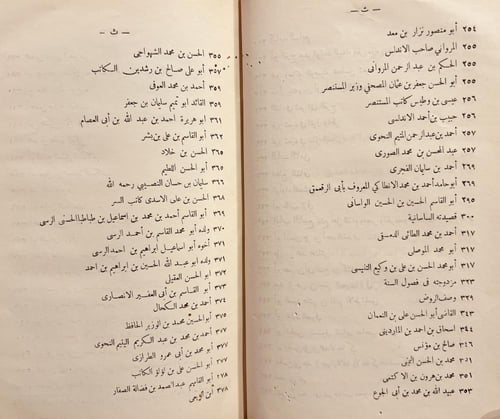 — ث —
٢٥٤ أبو منصور نزار بن معد
٢٥٥ المرواني صاحب الاندلس
٢٥٥ الحكم بن عبد الرحمن المرواني
٢٥٥ أبو الحسن جعفر بن عثمان المصحفي وزير المستنصر
٢٥٦ عيسى بن وطيس كاتب المستنصر
٢٥٦ حبيب بن أحمد الاندلسي
٢٥٧ أحمد بن عبد الرحمن المتيم النحوي
٢٥٧ عبد المحسن بن محمد الصوري
٢٦٩ أحمد بن سليمان الفجري
٢٦٩ أبو حامد أحمد بن محمد الانطاكي المعروف بأبي الرقعمق
٢٩٥ أبو القاسم الحسين بن الحسين الواساني
٣٠٠ قصيدته الساسانية
٣١٧ أحمد بن محمد الطائي الدمشقي
٣١٧ أبو محمد الموصلي
٣١٧ ابو محمد الحسن بن علي بن وكيع التنيسي
٣٢٣ مزدوجته في فصول السنة
٣٣٦ وصف الروض
٣٤٣ القاضي أبو الحسن علي بن النعمان
٣٤٤ اسحاق بن احمد بن المارديني
٣٤٦ صالح بن مؤنس
٣٥١ محمد بن الحسن
٣٥١ محمد بن هرون بن الاكتمي
٣٥٣ عبيد الله بن محمد بن أبي الجوع
— ث —
٣٥٥ الحسن بن محمد الشهواجي
٣٥٧ أبو علي صالح بن رشدين الكاتب
٣٥٩ احمد بن محمد العوفي
٣٥٩ القائد ابو تميم سليمان بن جعفر
٣٦١ ابو هريرة احمد بن عبد الله بن أبي العصام
٣٦٢ أبو القاسم بن علي بن بشر
٣٦٢ الحسن بن خلاد
٣٦٥ ابو الحسن اللطيم
٣٦٦ سليمان بن حسان النصيبي رحمه الله
٣٦٨ الحسن بن علي الاسدي كاتب السر
٣٦٩ ابو القاسم أحمد بن محمد بن اسماعيل بن طباطبا الحسني الرسي
٣٧٠ ولده أبو محمد القاسم بن أحمد الرسي
٣٧١ أخوه أبو اسماعيل ابراهيم بن احمد الرسي
٣٧١ ولده ابو عبد الله الحسين بن ابراهيم بن احمد
٣٧٢ ابو الحسن العقيلي
٣٧٣ ابو القاسم بن أبي العفير الانصاري
٣٧٤ أحمد بن محمد الكحال
٣٧٥ أبو الحسين محمد بن الوزير الحافظ
٣٧٧ أحمد بن محمد بن عبد الكريم اليتيم النحوي
٣٧٧ أبو محمد بن أبي عمرو الطرازي
٣٧٧ أبو الحسن علي بن لؤلؤ الكاتب
٢٧٨ أبو القاسم عبد الصمد بن فضالة الصفار
٣٧٨ ابن